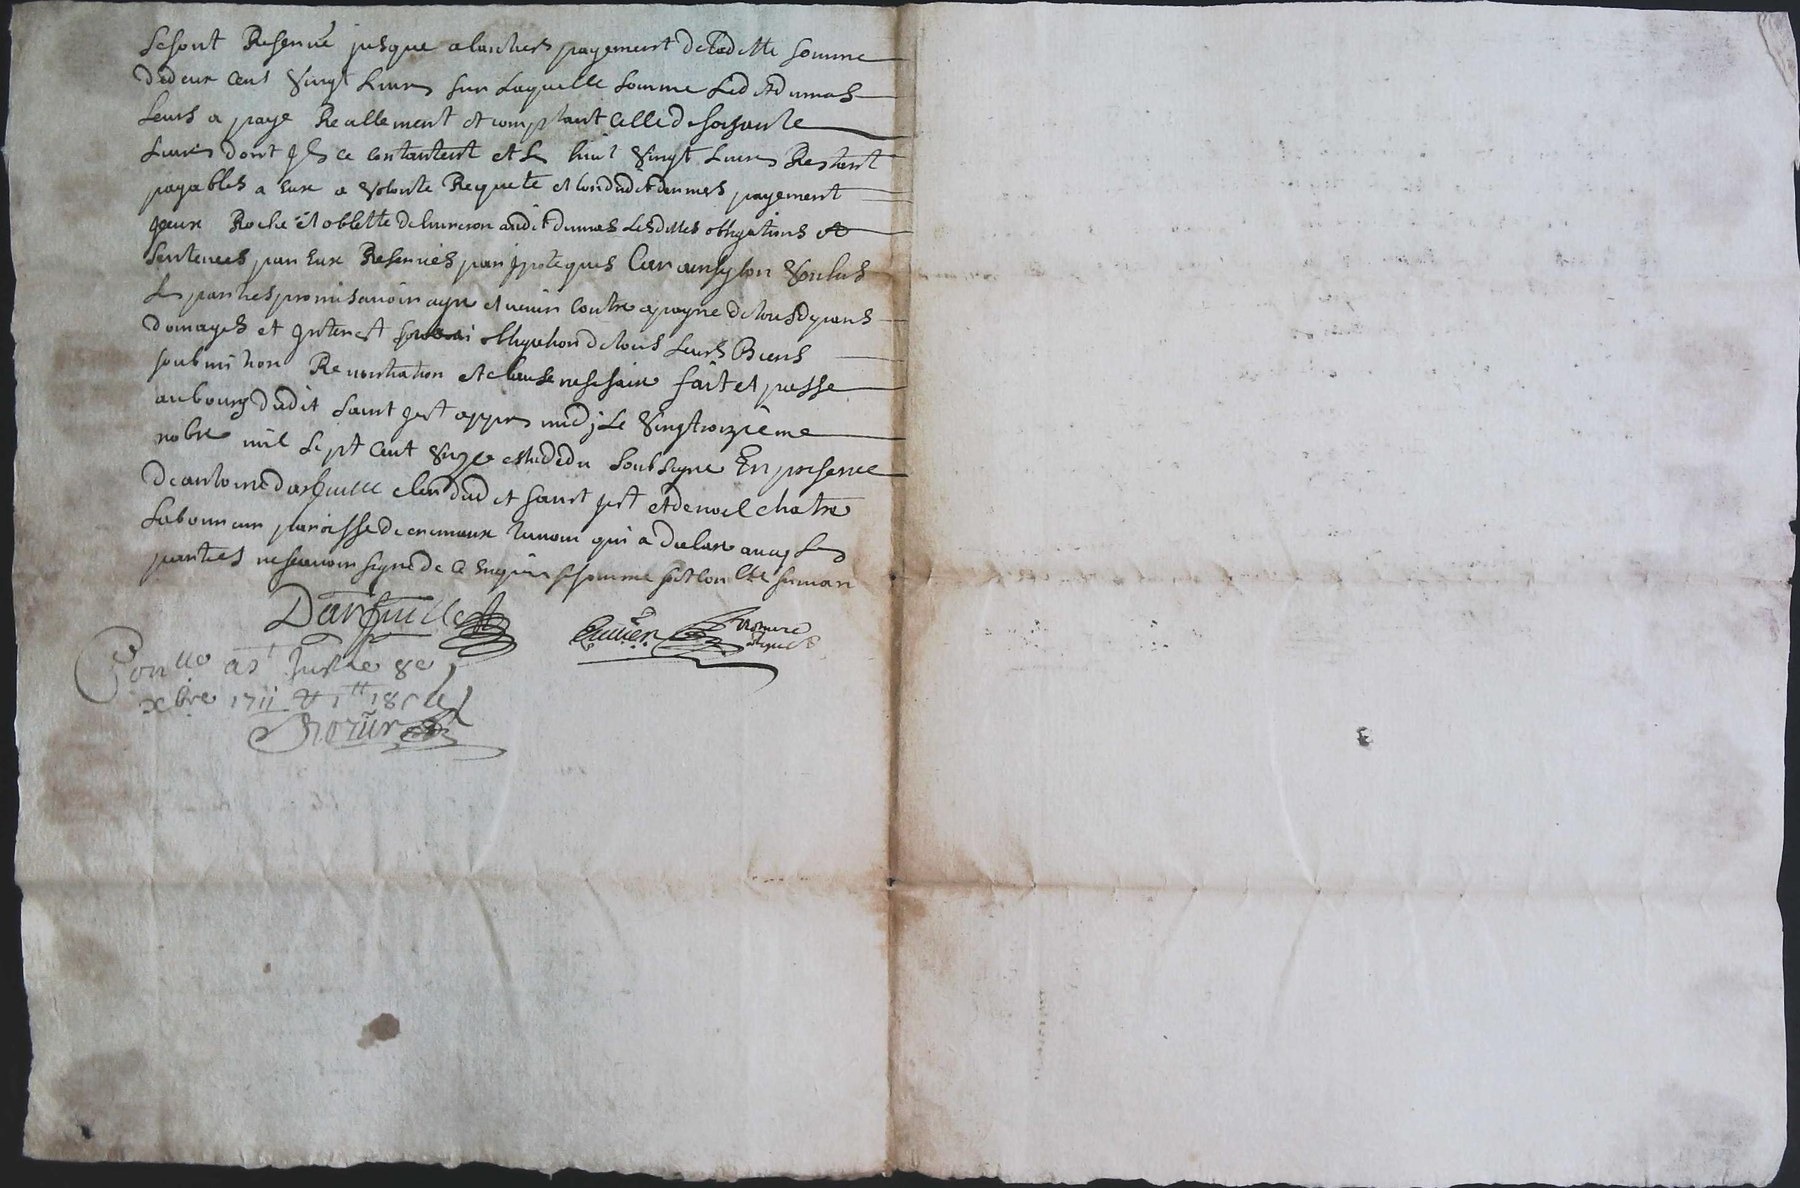 se sont Reservé jusque a lantiers payement de ladette somme
de deux cent vingt Livres sur Laquelle somme Ledit dumas
Leurs a payé Reallement et comptant celle de soisante
Livres dont Jls ce contantent et Les huit vingt Livres Restant
payables a Eux a volonté Requete et lors dudit dernies payement
yceux Roche et oblette delivreron audit dumas Lesdittes obligations et
sentences par Eux Reservies par ypoteques Car ainsy lon voulus
Les parties promis avoir agre et venir contre a payne de tous depans
domages et Jnterest obligation de tous Leurs Biens
soubmition Renontiation et clause nesesaire fait et passe
au bourg dudit saint just appres midy Le vingtroizieme
nobre mil sept cent unze estude du soubsigne En presence
de antoine darfeuille clerc dudit saint just et de noel chatre
Laboureur paroisse de cremaux temoin qui a declare avecq Les
parties ne scavoir signe de ce Enquis et somme selon
Darfeuille
notaire
Con^lle a S^t Just le 8e
xbre 1711